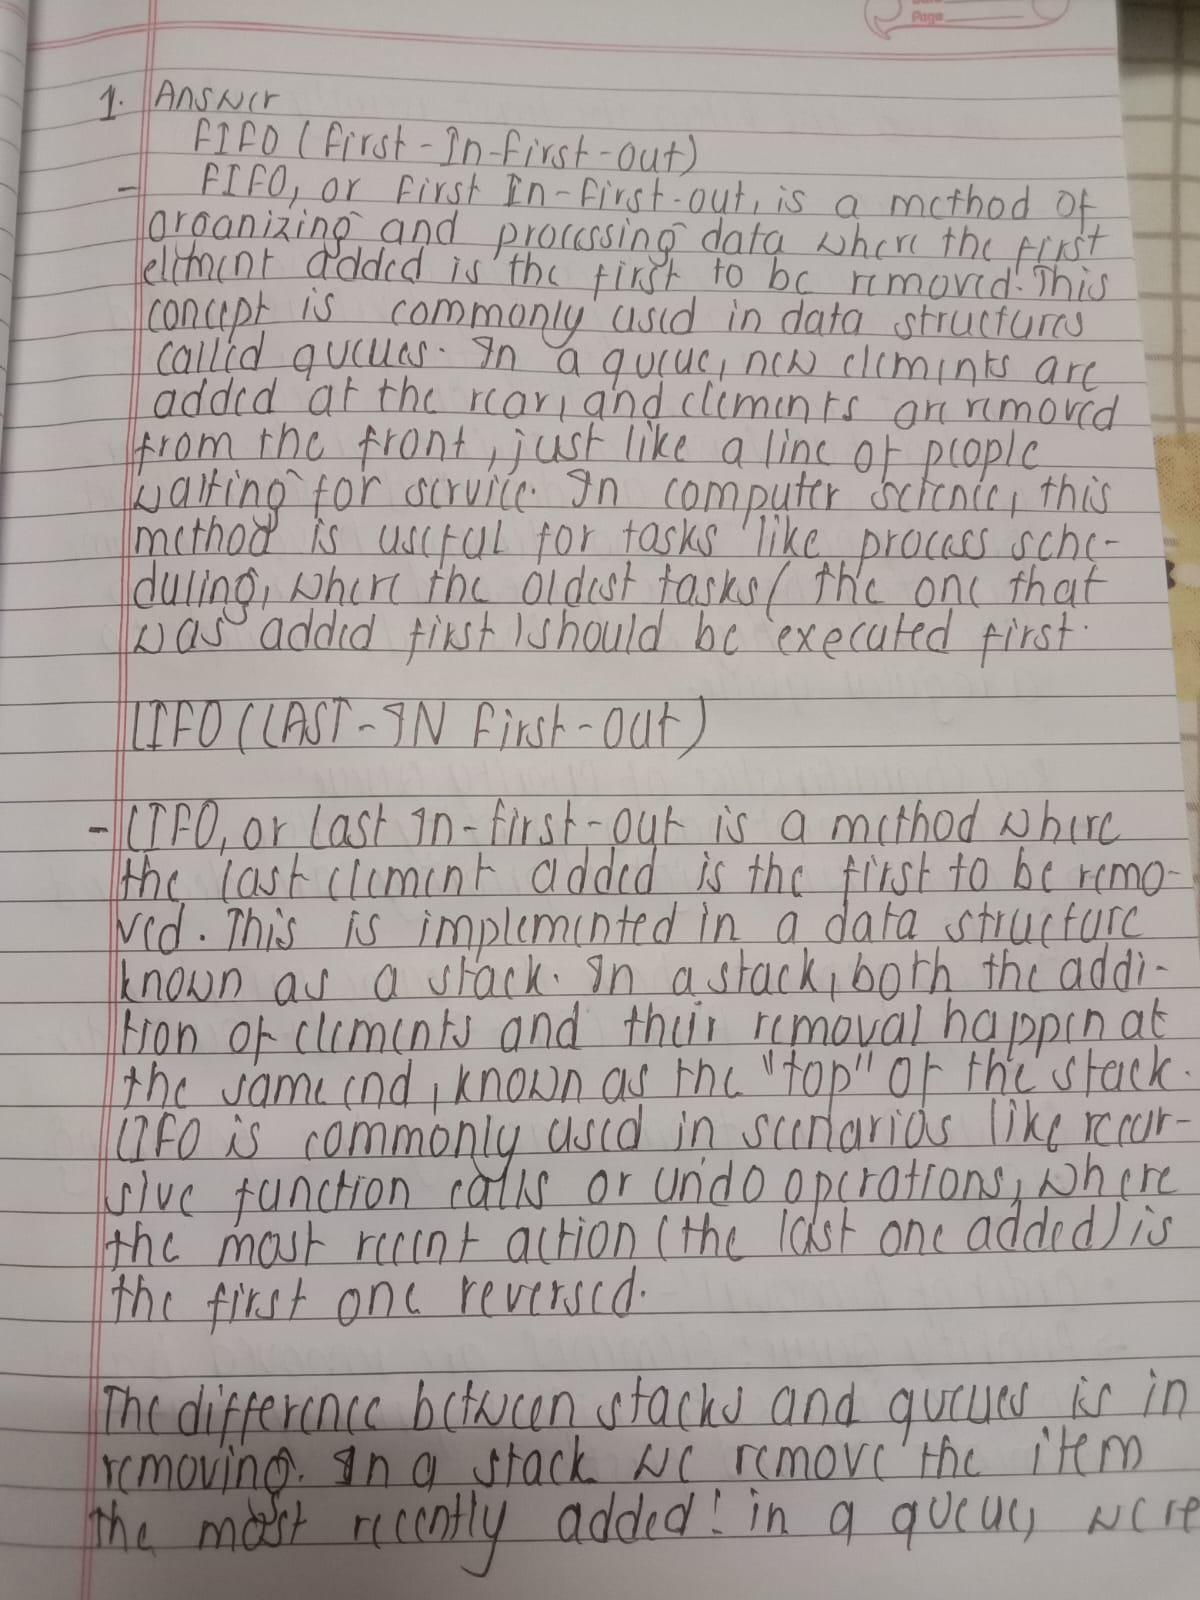 Page
1. Answer
FIFO (First-In-First-out)
- FIFO, or First In-First-out, is a method of
organizing and processing data where the first
element added is the first to be removed. This
concept is commonly used in data structures
called queues. In a queue, new elements are
added at the rear, and elements are removed
from the front, just like a line of people
waiting for service. In computer science, this
method is useful for tasks like process sche-
duling, where the oldest tasks (the one that
was added first) should be executed first.
LIFO (LAST-IN First-out)
- LIFO, or Last In-first-out is a method where
the last element added is the first to be remo-
ved. This is implemented in a data structure
known as a stack. In a stack, both the addi-
tion of elements and their removal happen at
the same end, known as the "top" of the stack.
LIFO is commonly used in scenarios like recur-
sive function calls or undo operations, where
the most recent action (the last one added) is
the first one reversed.
The difference between stacks and queues is in
removing. In a stack we remove the item
the most recently added; in a queue, we re